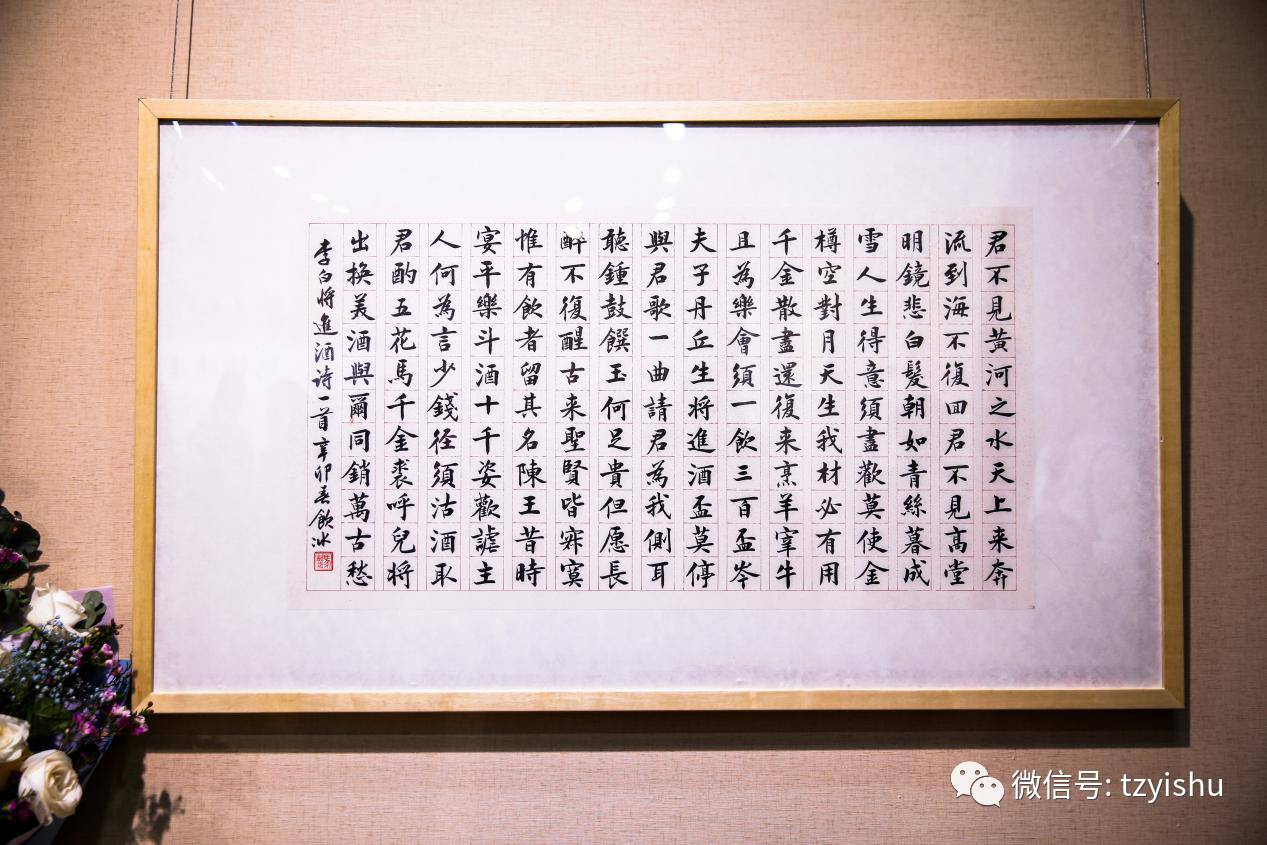 君不見黃河之水天上来奔
流到海不復回君不見高堂
明鏡悲白髮朝如青絲暮成
雪人生得意須盡歡莫使金
樽空對月天生我材必有用
千金散盡還復来烹羊宰牛
且為樂會須一飲三百盃岑
夫子丹丘生将進酒盃莫停
與君歌一曲請君為我側耳
聽鍾鼓饌玉何足貴但愿長
醉不復醒古来聖賢皆寂寞
惟有飲者留其名陳王昔時
宴平樂斗酒十千姿歡謔主
人何為言少錢径須沽酒取
君酌五花馬千金裘呼兒将
出換美酒與爾同銷萬古愁
李白将進酒诗一首辛卯春飲冰
微信号: tzyishu